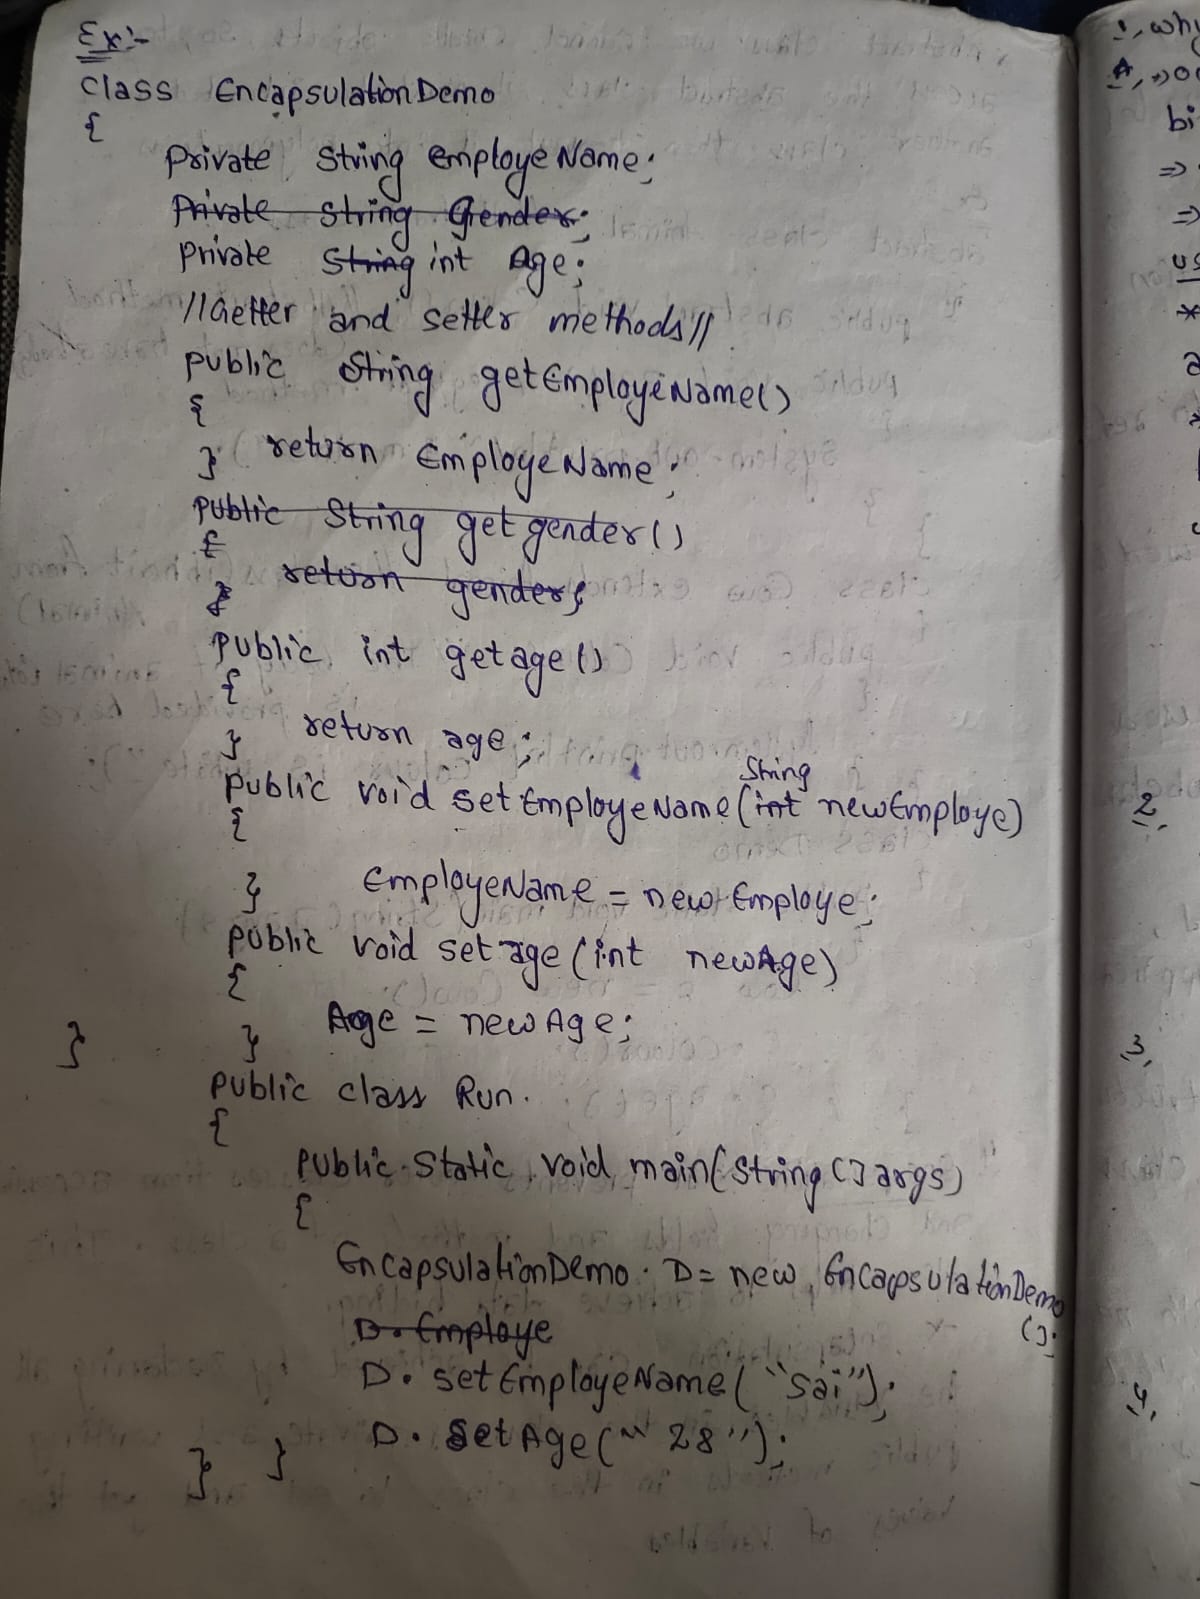 Ex:-
Class EncapsulationDemo
{
Private String employeName;
Private String Gender;
Private String int Age;
//Getter and setter methods//
public String getEmployeName()
{
return EmployeName;
}
public String getgender()
{
return gender;
}
public int getage()
{
return age;
}
String
public void setEmployeName(int newEmploye)
{
EmployeName = newEmploye;
}
public void setage(int newAge)
{
Age = newAge;
}
}
public class Run.
{
public static void main(String []args)
{
EncapsulationDemo. D= new EncapsulationDemo
();
D. Employe
D. setEmployeName("sai");
D. setAge("28");
}
}
1, why
A,
bi
us
2,
3,
4,